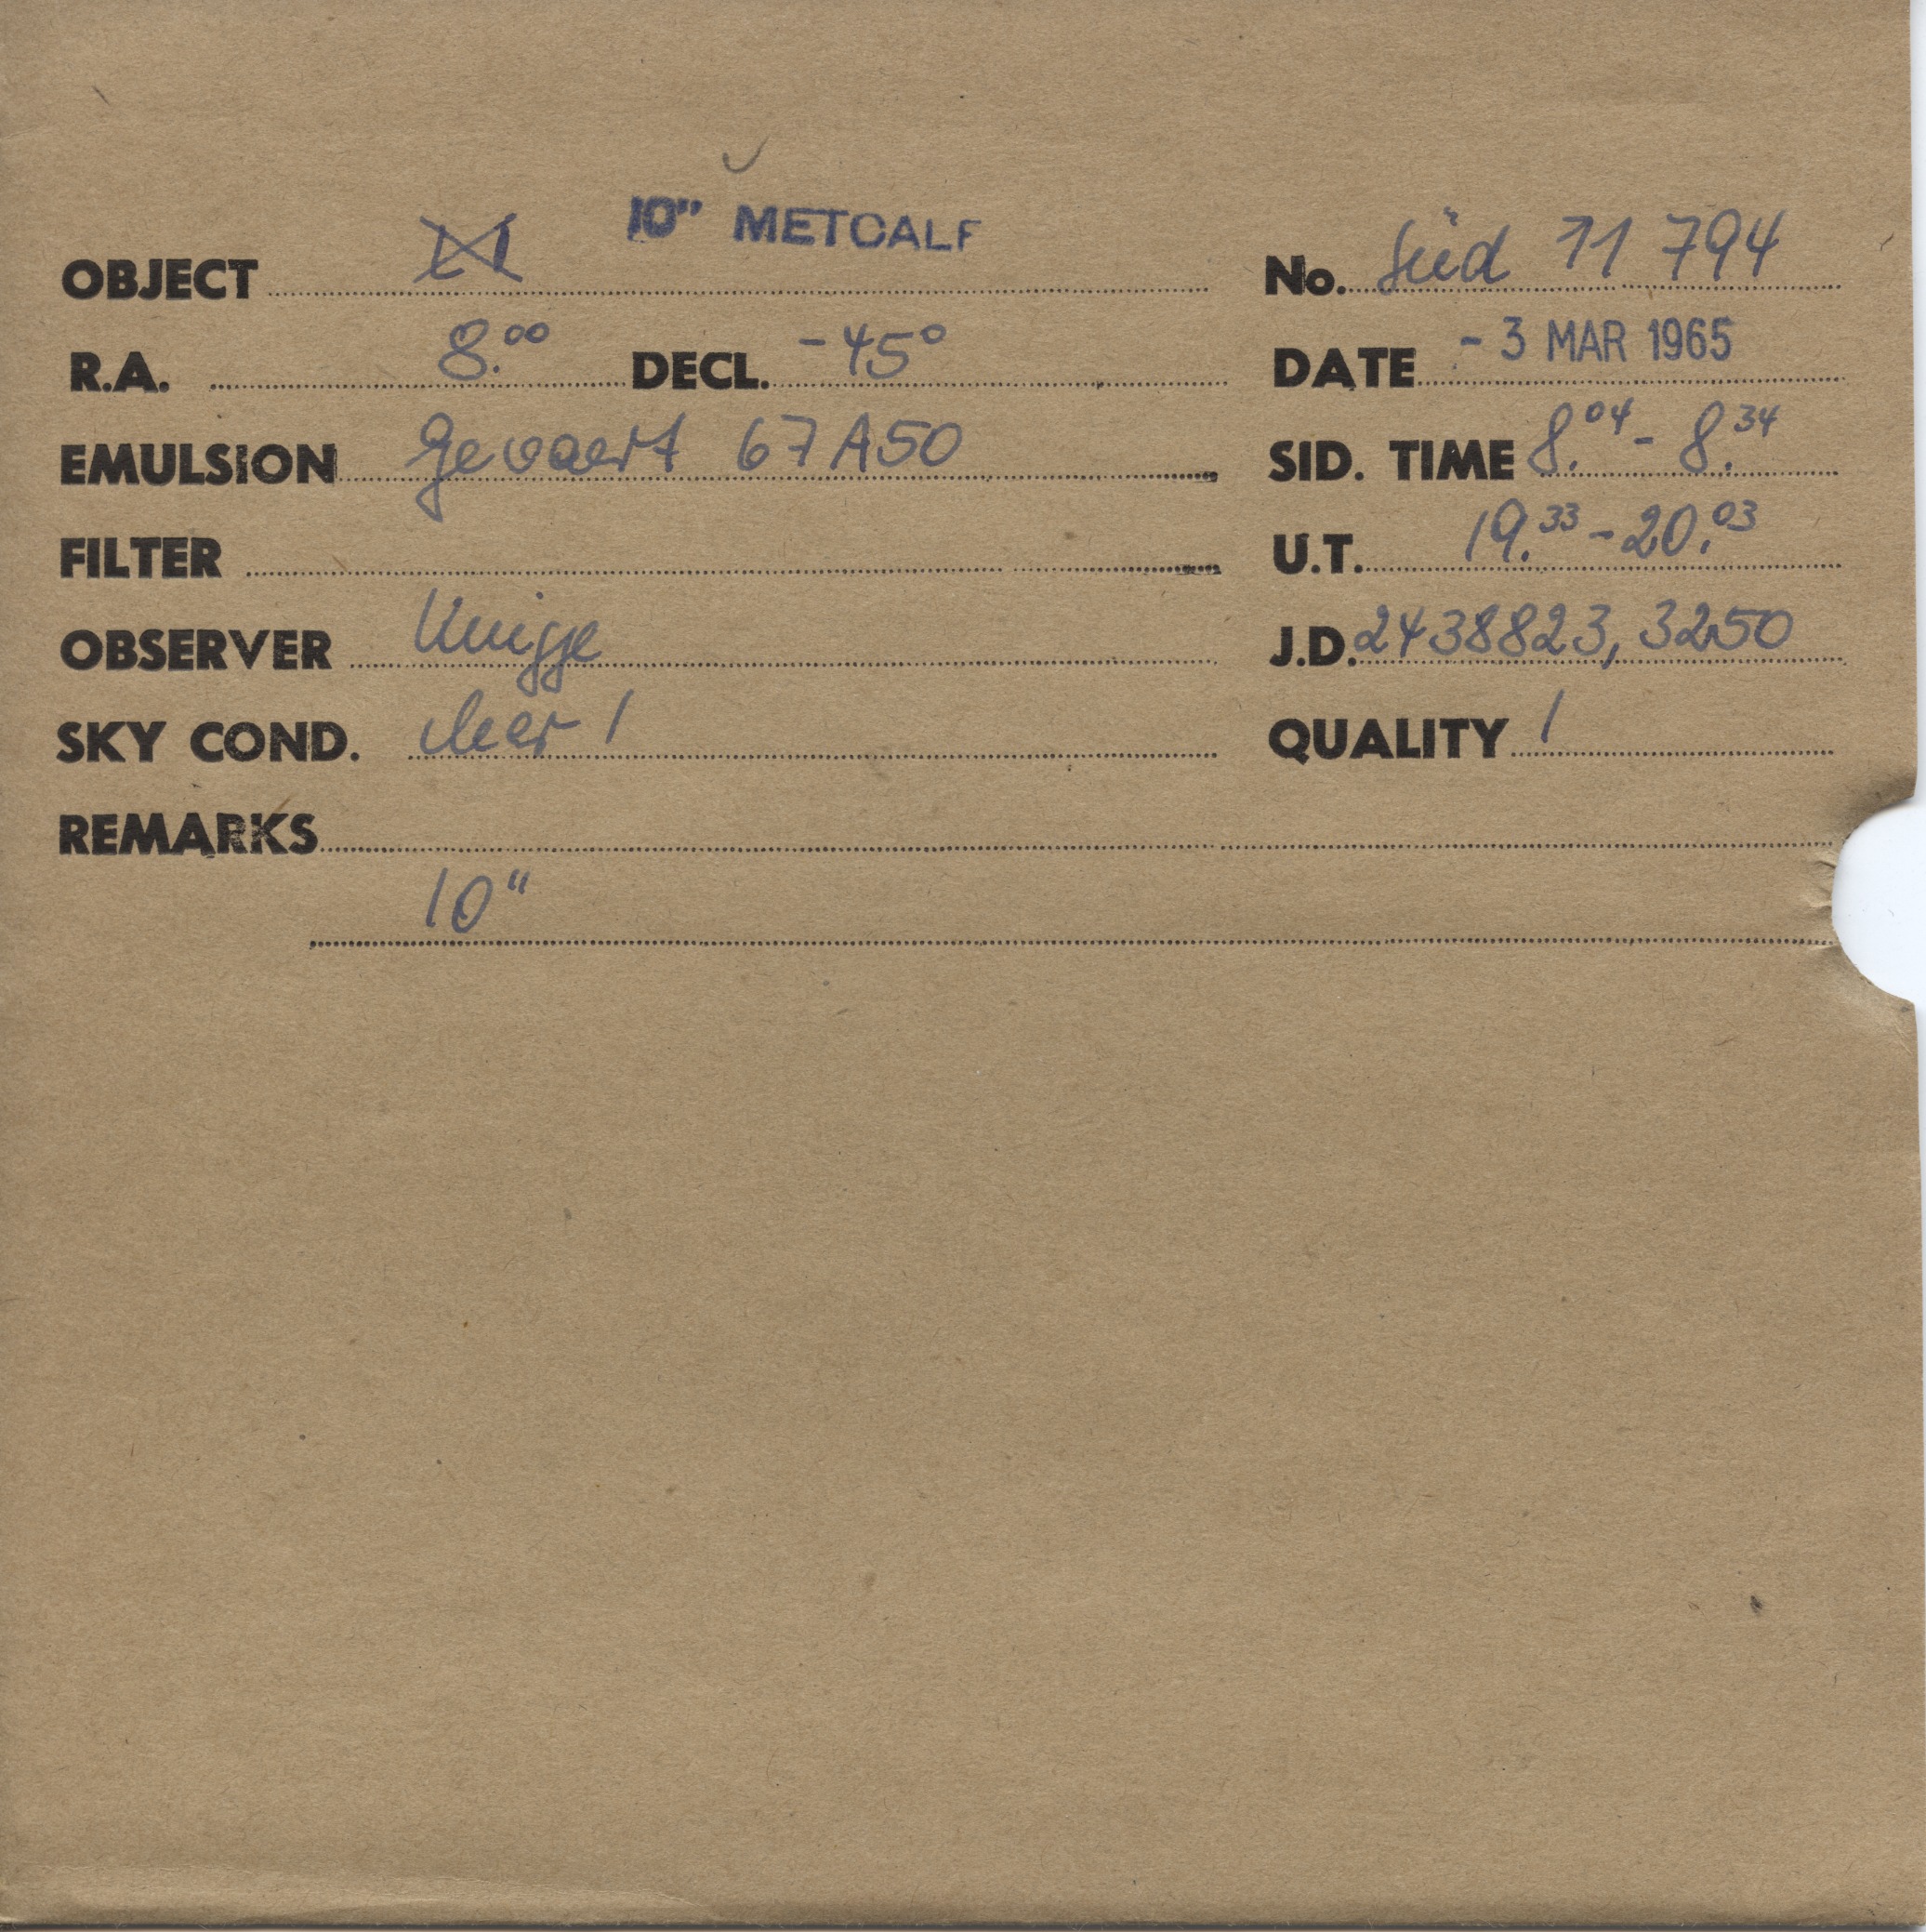 10" METCALF
OBJECT No. Süd 11 794
R.A. 8.00 DECL. -45° DATE - 3 MAR 1965
EMULSION Gevaert 67A50 SID. TIME 8.04 - 8.34
FILTER U.T. 19.33 - 20.03
OBSERVER Knigge J.D. 2438823,3250
SKY COND. clear 1 QUALITY 1
REMARKS
10"